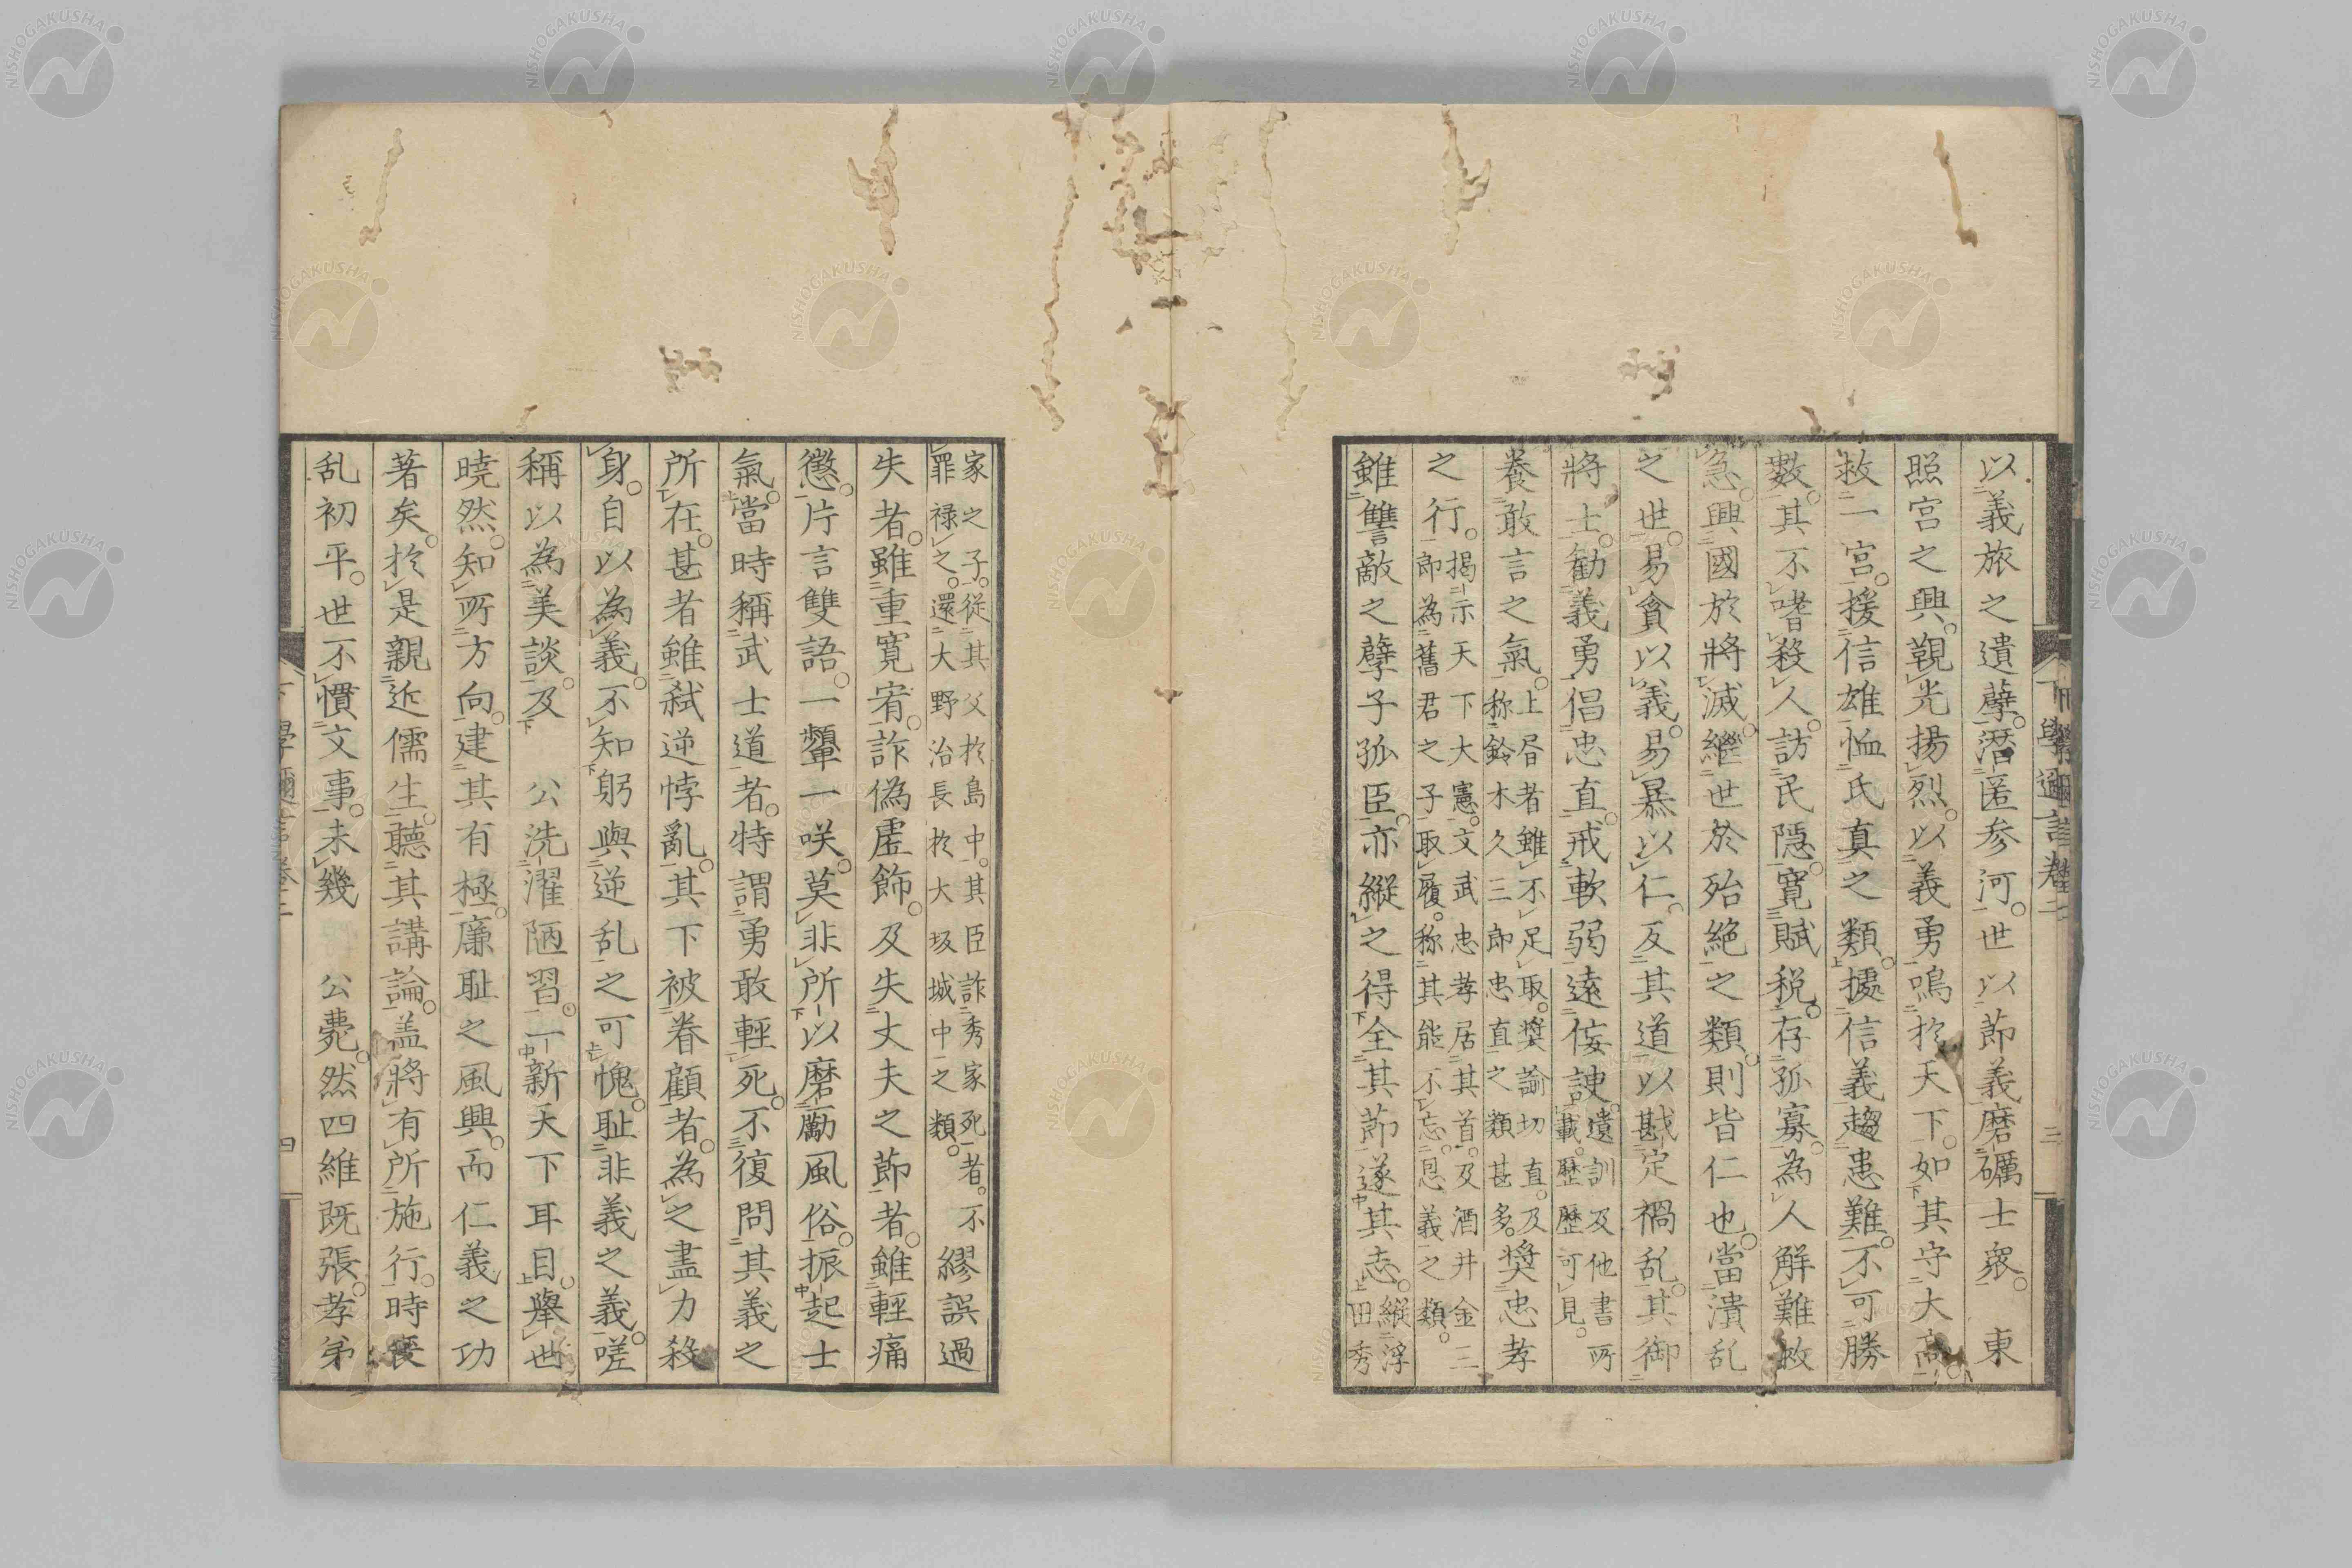 以義旅之遺孽。潛匿参河。世以節義磨礪士衆。 東
照宮之興。觀光揚烈。以義勇鳴於天下。如其守大高。
救一宮。援信雄。恤氏真之類。據信義趨患難。不可勝
數。其不嗜殺人。訪民隠。寛賦税。存孤寡。為人解難救
急。興國於將滅。繼世於殆絶之類。則皆仁也。當潰乱
之世。易貪以義。易暴以仁。反其道以戡定禍乱。其御
將士。勧義勇。倡忠直。戒軟弱。遠佞諛。
遺訓及他書所
載。歴歴可見。
養敢言之氣。
上㫺者雖不足取。奨諭切直。及
称鈴木久三郎忠直之類甚多。
奨忠孝
之行。
揭示天下大憲。文武忠孝居其首。及酒井金三
郎為舊君之子取履。称其能不忘恩義之類。
雖讐敵之孽子孤臣。亦縦之得全其節遂其志。
縦浮
田秀
家之子。従其父於島中。其臣詐秀家死者。不
罪禄之。還大野治長於大坂城中之類。
繆誤過
失者。雖重寛宥。詐偽虚飾。及失丈夫之節者。雖軽痛
懲。片言雙語。一顰一咲。莫非所以磨勵風俗。振起士
氣。當時稱武士道者。特謂勇敢軽死。不復問其義之
所在。甚者雖弑逆悖亂。其下被眷顧者。為之盡力殺
身。自以為義。不知躬與逆乱之可愧。耻非義之義。嗟
稱以為美談。及 公洗濯陋習。一新天下耳目。擧世
暁然。知所方向。建其有極。廉耻之風興。而仁義之功
著矣。於是親近儒生。聴其講論。盖將有所施行。時喪
乱初平。世不慣文事。未幾 公薨。然四維既張。孝弟
下學邇言巻二
三
四